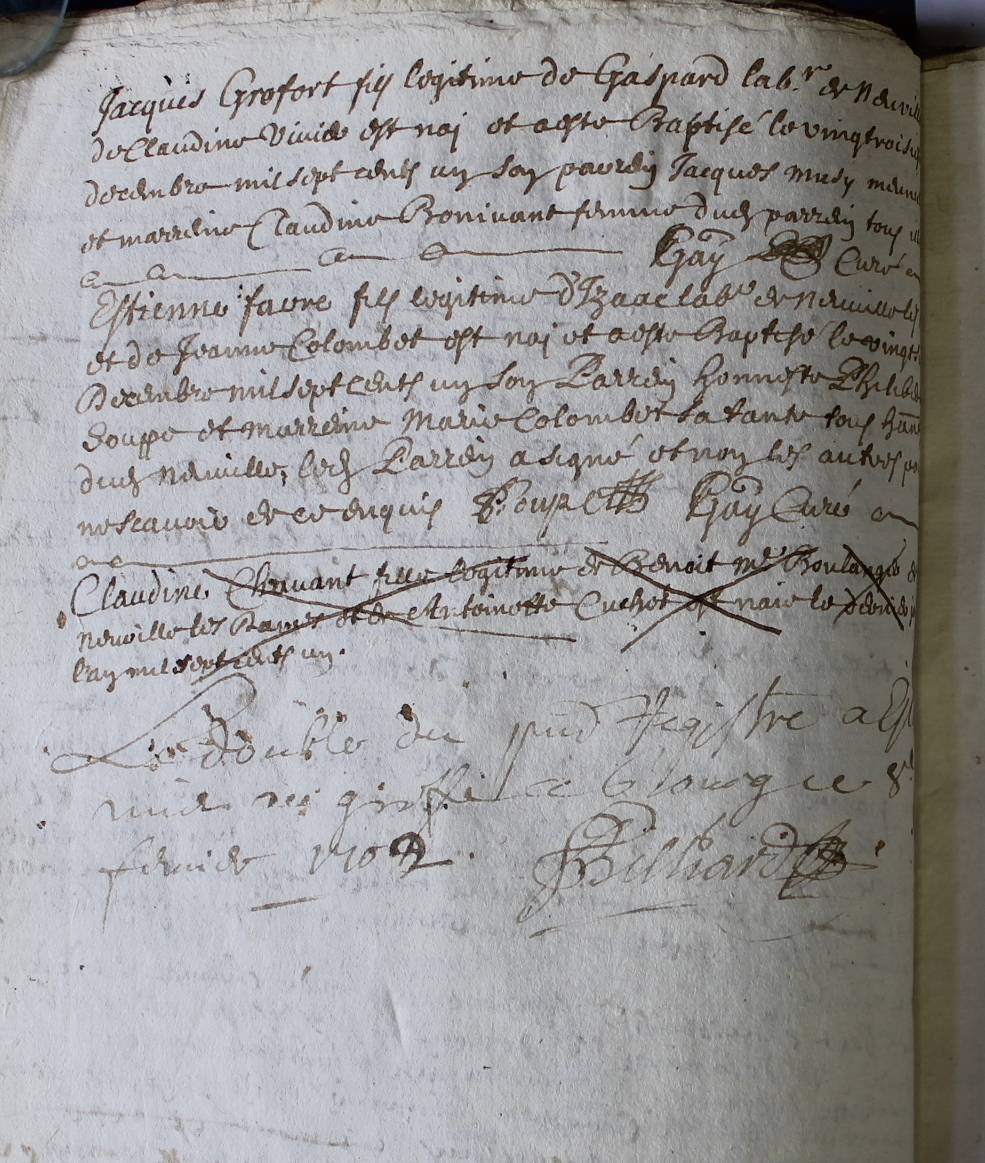 Jacques Grofort fils legitime de Gaspard lab.r de Neuvill
de Claudine Vivied est naj et aesté Baptisé le vingt trois
decembre mil sept cents un son parrein Jacques musy
et marreine Claudine Bonivant femme dud parrein tous
Gay Curé
Estienne favre fils legitime d'Izaac labr de Neuville les
et de Jeanne Colombet est naj et aesté Baptisé le vingt
Decembre mil sept cents un son Parrein honneste Philibe
Douppe et marreine Marie Colombet sa tante tous
dud Neuville, led Parrein a signé et non les autres p
ne scavoir de ce enquis Gay Curé
Claudine fille legitime de Benoit me Boulange
Neuville les Dames et de Antoinette Cuchet est naie le
l'an mil sept cents un.
Le double du pnt Registre a Es
mid au greffe a Bourg ce 8
fevrier 1702 Billiard